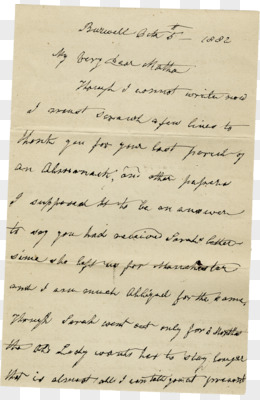 Burwell Oct 5th 1882
My Very Dear Martha
Though I cannot write now
I must scrawl a few lines to
thank you for your last parcel of
an Almanack, and other papers
I supposed it to be an answer
to say you had received Sarah's letter
since she left us for Manchester
and I am much obliged for the same,
Though Sarah went out only for 3 Months
the Old Lady wants her to stay longer
that is almost all I can tell you at present